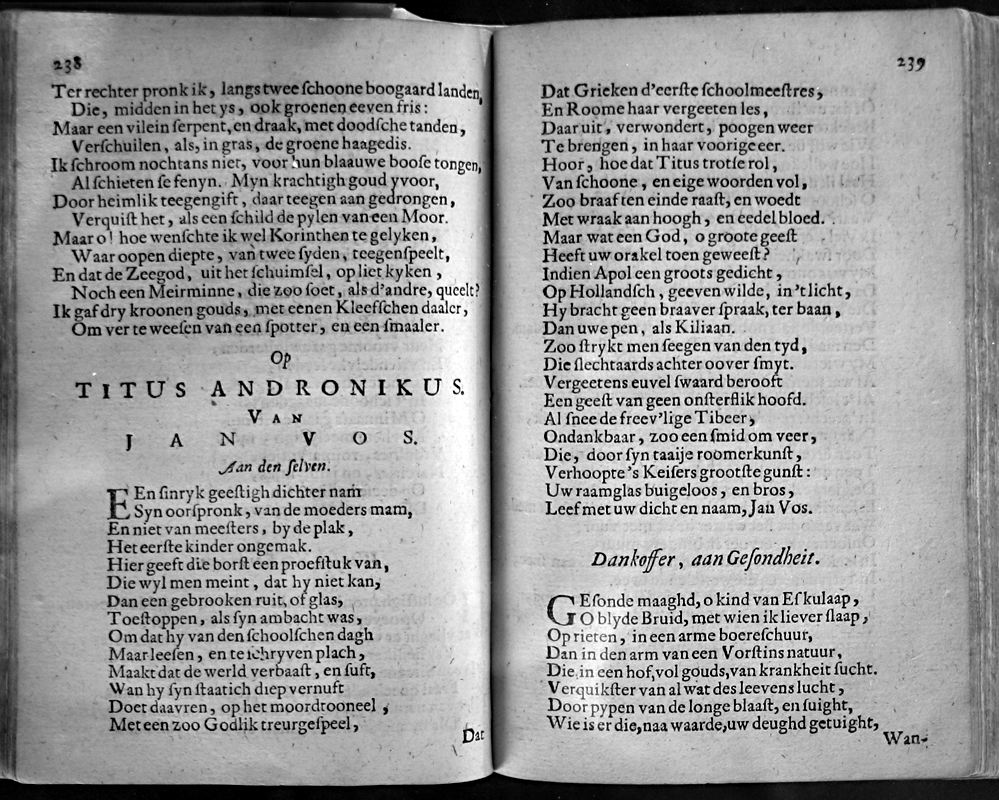 238
Ter rechter pronk ik, langs twee ſchoone boogaard landen,
Die, midden in het ys, ook groenen eeven fris:
Maar een vilein ſerpent, en draak, met doodſche tanden,
Verſchuilen, als, in gras, de groene haagedis.
Ik ſchroom nochtans niet, voor hun blaauwe booſe tongen,
Al ſchieten ſe fenyn. Myn krachtigh goud yvoor,
Door heimlik teegengift, daar teegen aan gedrongen,
Verquiſt het, als een ſchild de pylen van een Moor.
Maar o! hoe wenſchte ik wel Korinthen te gelyken,
Waar oopen diepte, van twee ſyden, teegenſpeelt,
En dat de Zeegod, uit het ſchuimſel, op liet kyken,
Noch een Meirminne, die zoo ſoet, als d'andre, queelt?
Ik gaf dry kroonen gouds, met eenen Kleefſchen daaler,
Om ver te weeſen van een ſpotter, en een ſmaaler.
Op
TITUS ANDRONIKUS.
VAN
JAN VOS.
Aan den ſelven.
EEn ſinryk geeſtigh dichter nam
Syn oorſpronk, van de moeders mam,
En niet van meeſters, by de plak,
Het eerſte kinder ongemak.
Hier geeft die borſt een proefſtuk van,
Die wyl men meint, dat hy niet kan,
Dan een gebrooken ruit, of glas,
Toeſtoppen, als ſyn ambacht was,
Om dat hy van den ſchoolſchen dagh
Maar leeſen, en te ſchryven plach,
Maakt dat de werld verbaaſt, en ſuft,
Wan hy ſyn ſtaatich diep vernuft
Doet daavren, op het moordtooneel,
Met een zoo Godlik treurgeſpeel,
Dat
239
Dat Grieken d'eerſte ſchoolmeeſtres,
En Roome haar vergeeten les,
Daar uit, verwondert, poogen weer
Te brengen, in haar voorige eer.
Hoor, hoe dat Titus trotſe rol,
Van ſchoone, en eige woorden vol,
Zoo braaf ten einde raaſt, en woedt
Met wraak aan hoogh, en eedel bloed.
Maar wat een God, o groote geeſt
Heeft uw orakel toen geweeſt?
Indien Apol een groots gedicht,
Op Hollandſch, geeven wilde, in 't licht,
Hy bracht geen braaver ſpraak, ter baan,
Dan uwe pen, als Kiliaan.
Zoo ſtrykt men ſeegen van den tyd,
Die ſlechtaards achter oover ſmyt.
Vergeetens euvel ſwaard berooft
Een geeſt van geen onſterflik hoofd.
Al ſnee de freev'lige Tibeer,
Ondankbaar, zoo een ſmid om veer,
Die, door ſyn taaije roomerkunſt,
Verhoopte 's Keiſers grootſte gunſt:
Uw raamglas buigeloos, en bros,
Leef met uw dicht en naam, Jan Vos.
Dankoffer, aan Geſondheit.
GEſonde maaghd, o kind van Eſkulaap,
O blyde Bruid, met wien ik liever ſlaap,
Op rieten, in een arme boereſchuur,
Dan in den arm van een Vorſtins natuur,
Die, in een hof, vol gouds, van krankheit ſucht.
Verquikſter van al wat des leevens lucht,
Door pypen van de longe blaaſt, en ſuight,
Wie is er die, naa waarde, uw deughd getuight,
Wan-